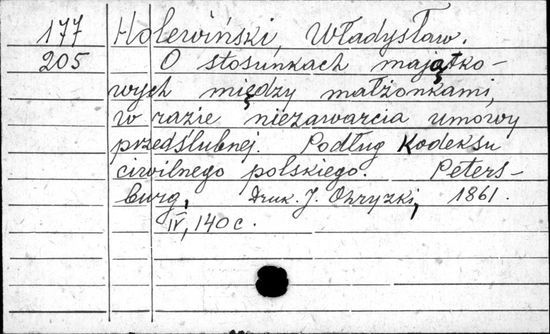 177 Holewiński, Władysław.
205 O stosunkach majątko-
wych między małżonkami,
w razie niezawarcia umowy
przedślubnej. Podług Kodeksu
ciwilnego polskiego. Peters-
burg, Druk. J. Ohryzki, 1861.
IV, 140 c.